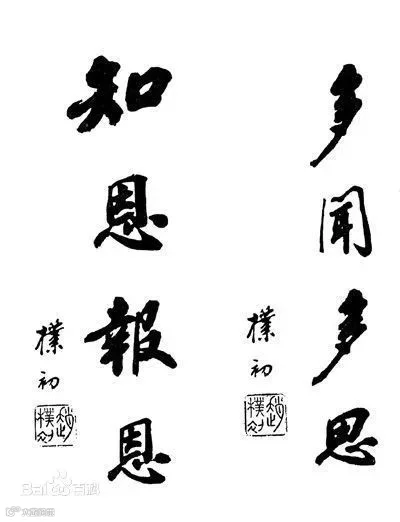 多聞多思
樸初
趙樸初
知恩報恩
樸初
趙樸初
Bai百科